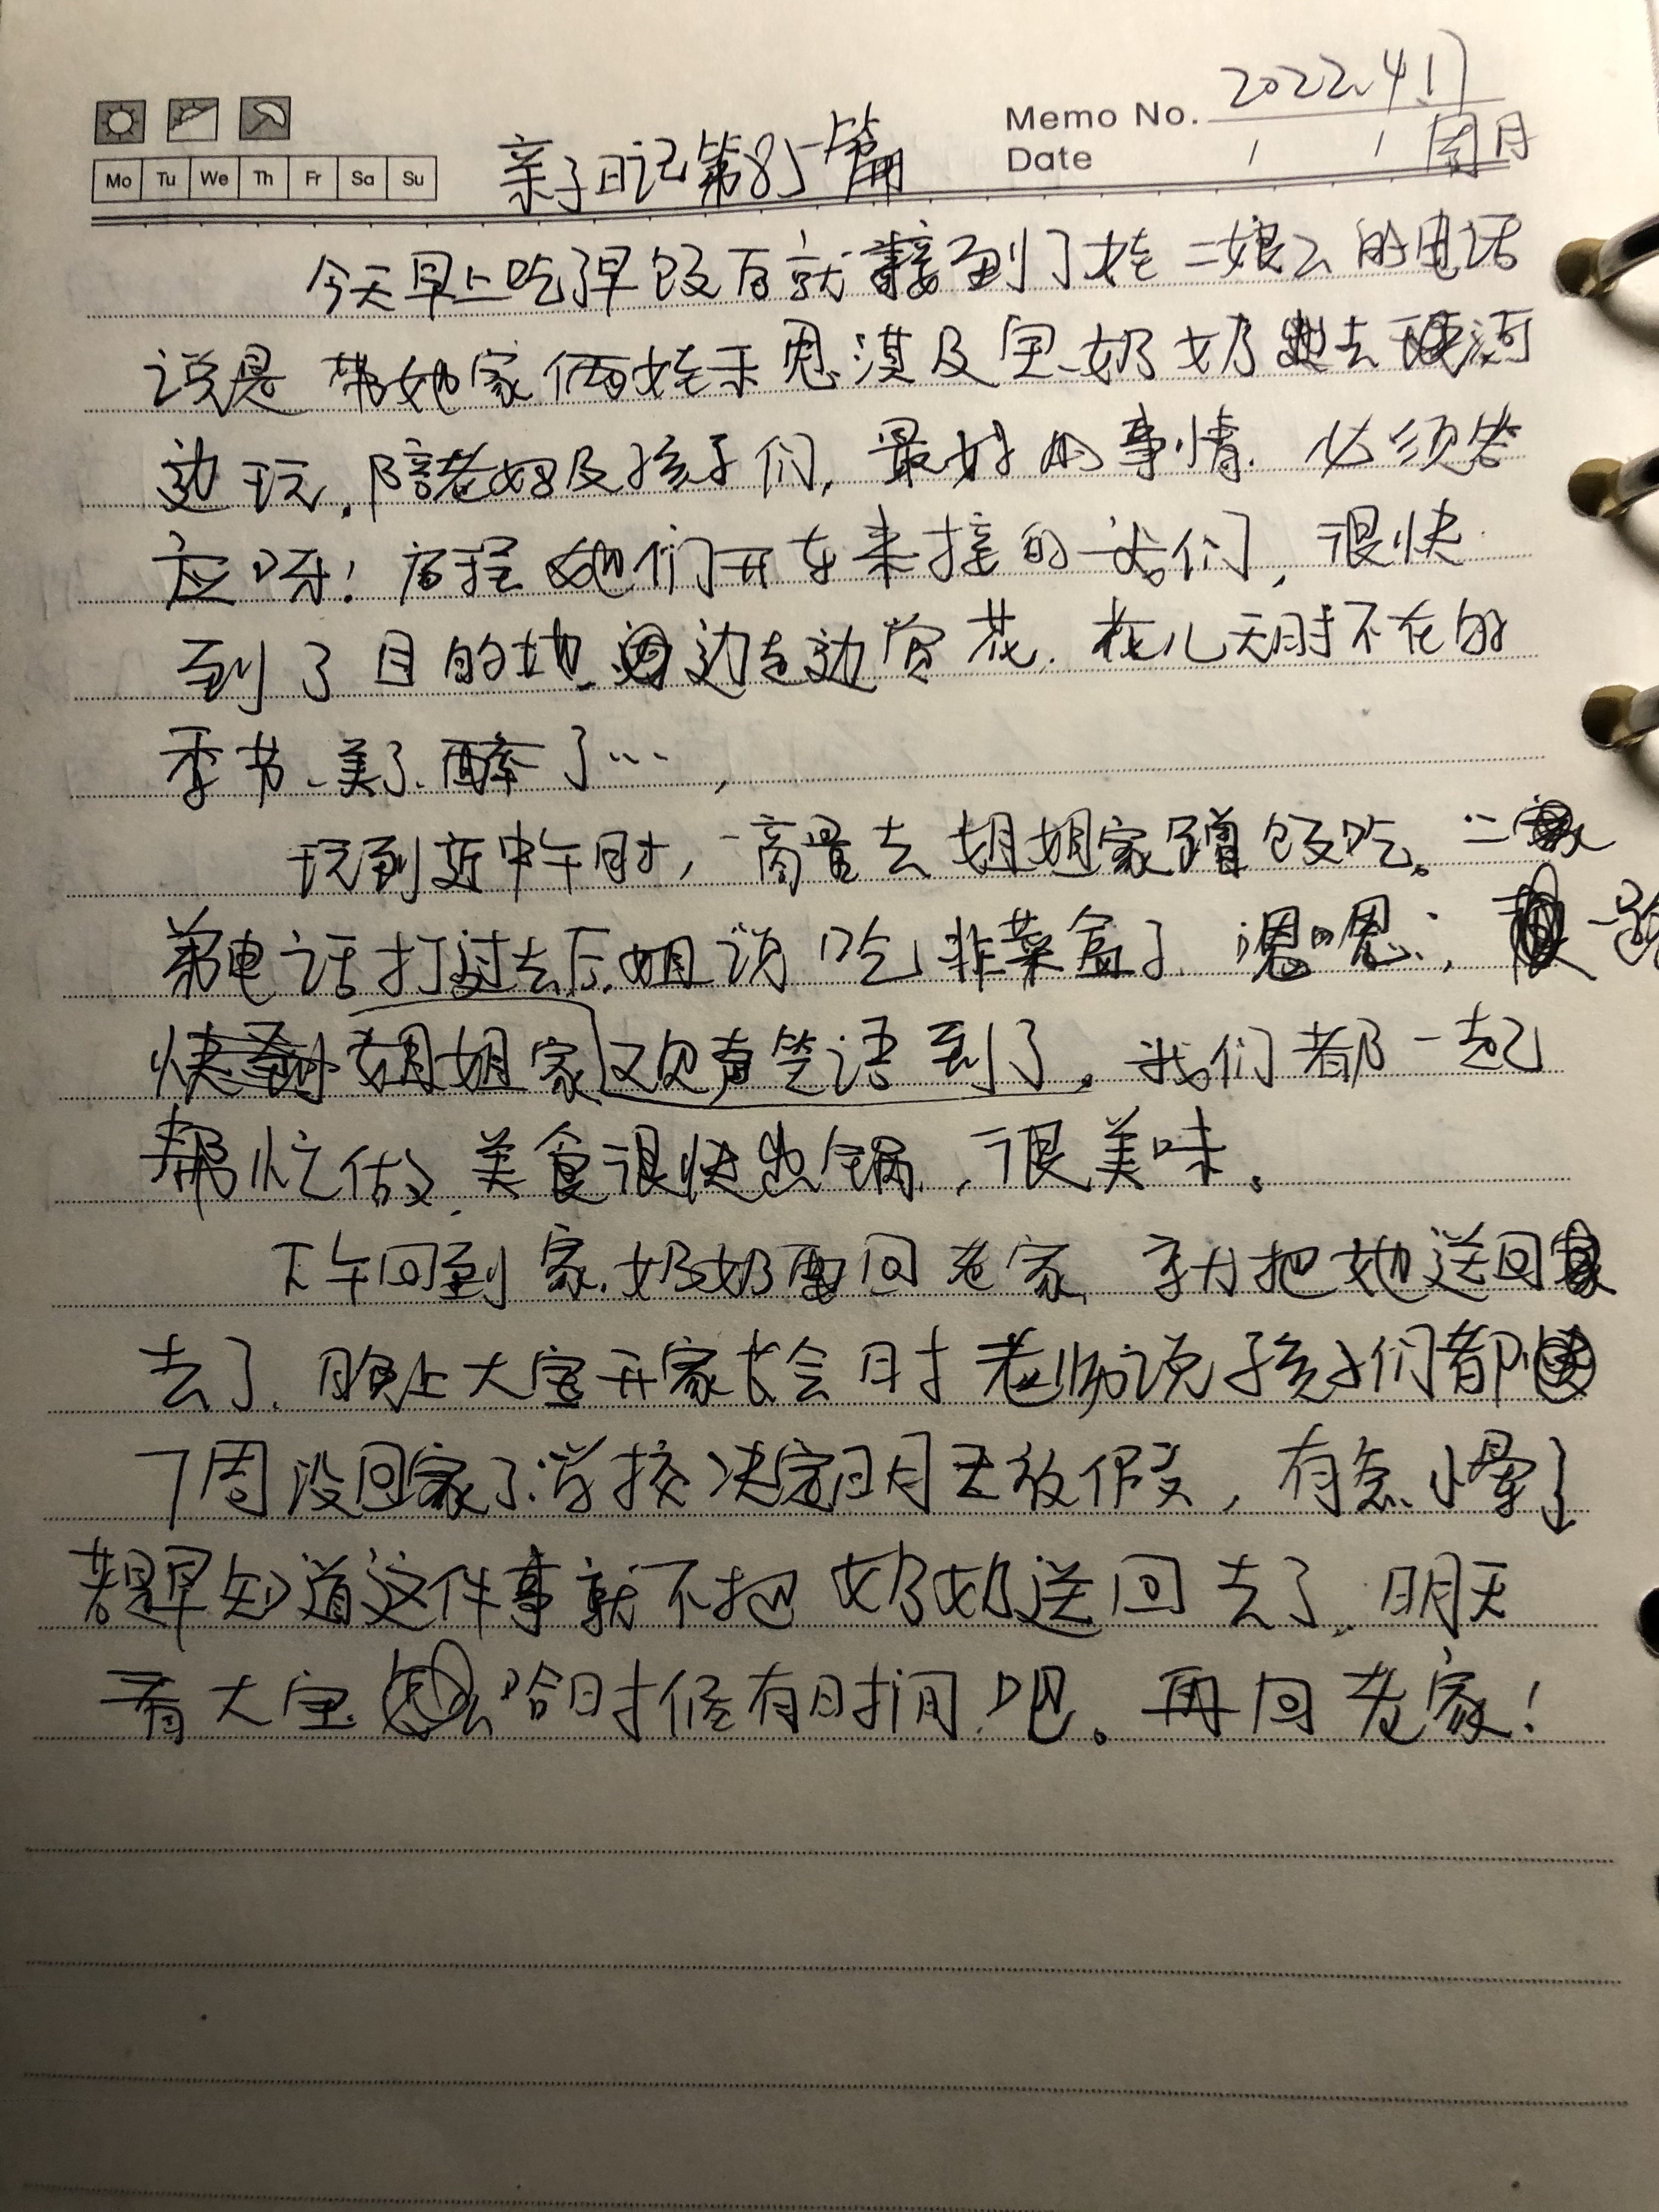 2022.4.17
Memo No.
Date / / 周日
Mo Tu We Th Fr Sa Su
亲子日记第85篇
今天早上吃了早饭后就接到了娃二娘的电话
说是带她家俩娃禾思漠及宝奶奶出去河
边玩,陪老妈及孩子们,最好的事情.必须答
应呀!后程她们开车来接的我们,很快
到了目的地.边走边赏花.花儿无时不在的
季节、美了、醉了…
玩到近中午时,商量去姐姐家蹭饭吃。二
弟电话打过去后.姐说吃韭菜盒子.嗯嗯,一路
姐姐家欢声笑语到了.我们都一起
帮忙做,美食很快出锅,很美味。
下午回到家.奶奶要回老家,就把她送回
去了.晚上大宝开家长会时老师说孩子们都
7周没回家了.学校决定明天放假,有急懵了
若是早知道这件事就不把奶奶送回去了.明天
看大宝啥时候有时间吧。再回老家!